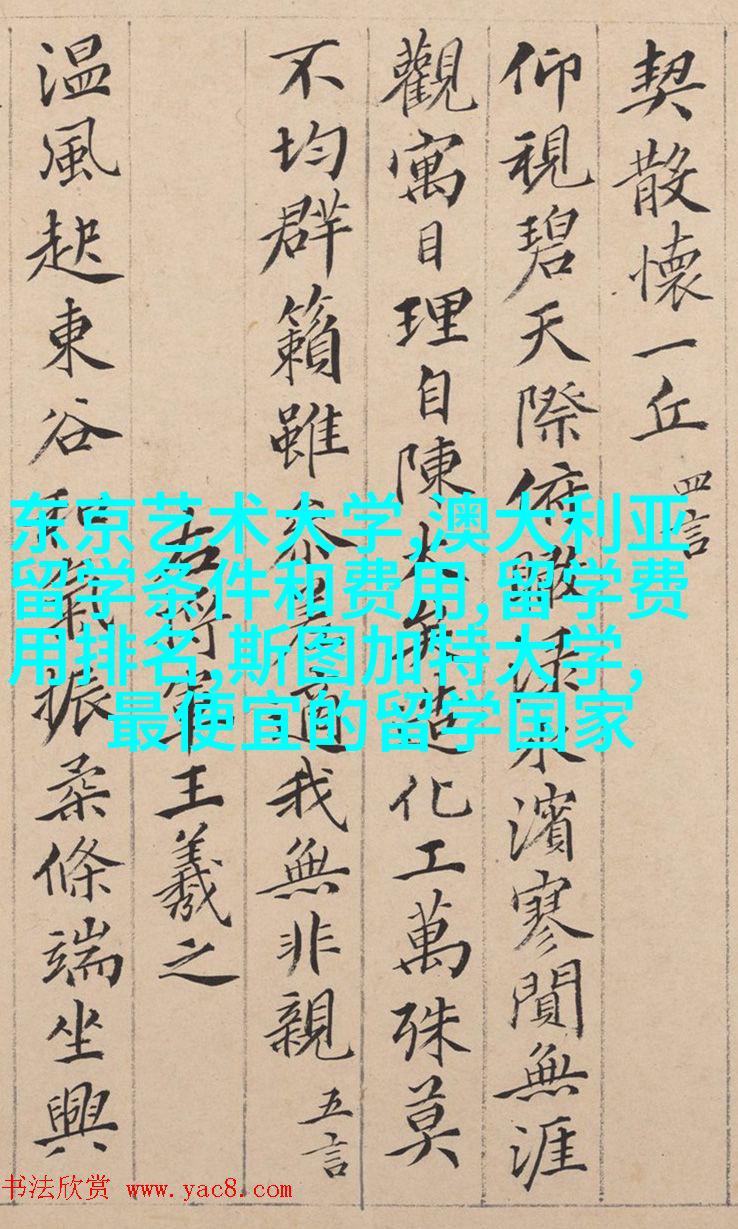 契散懷一丘 四言
仰視碧天際俯瞰淥水濱寥閴無涯
觀寓目理自陳大矣造化工萬殊莫
不均群籟雖參差適我無非親 五言
右將軍王羲之
溫風起東谷和氣振柔條端坐興
东京艺术大学,澳大利亚
留学条件和费用,留学费
用排名,斯图加特大学,
最便宜的留学国家
书法欣赏 www.yac8.com